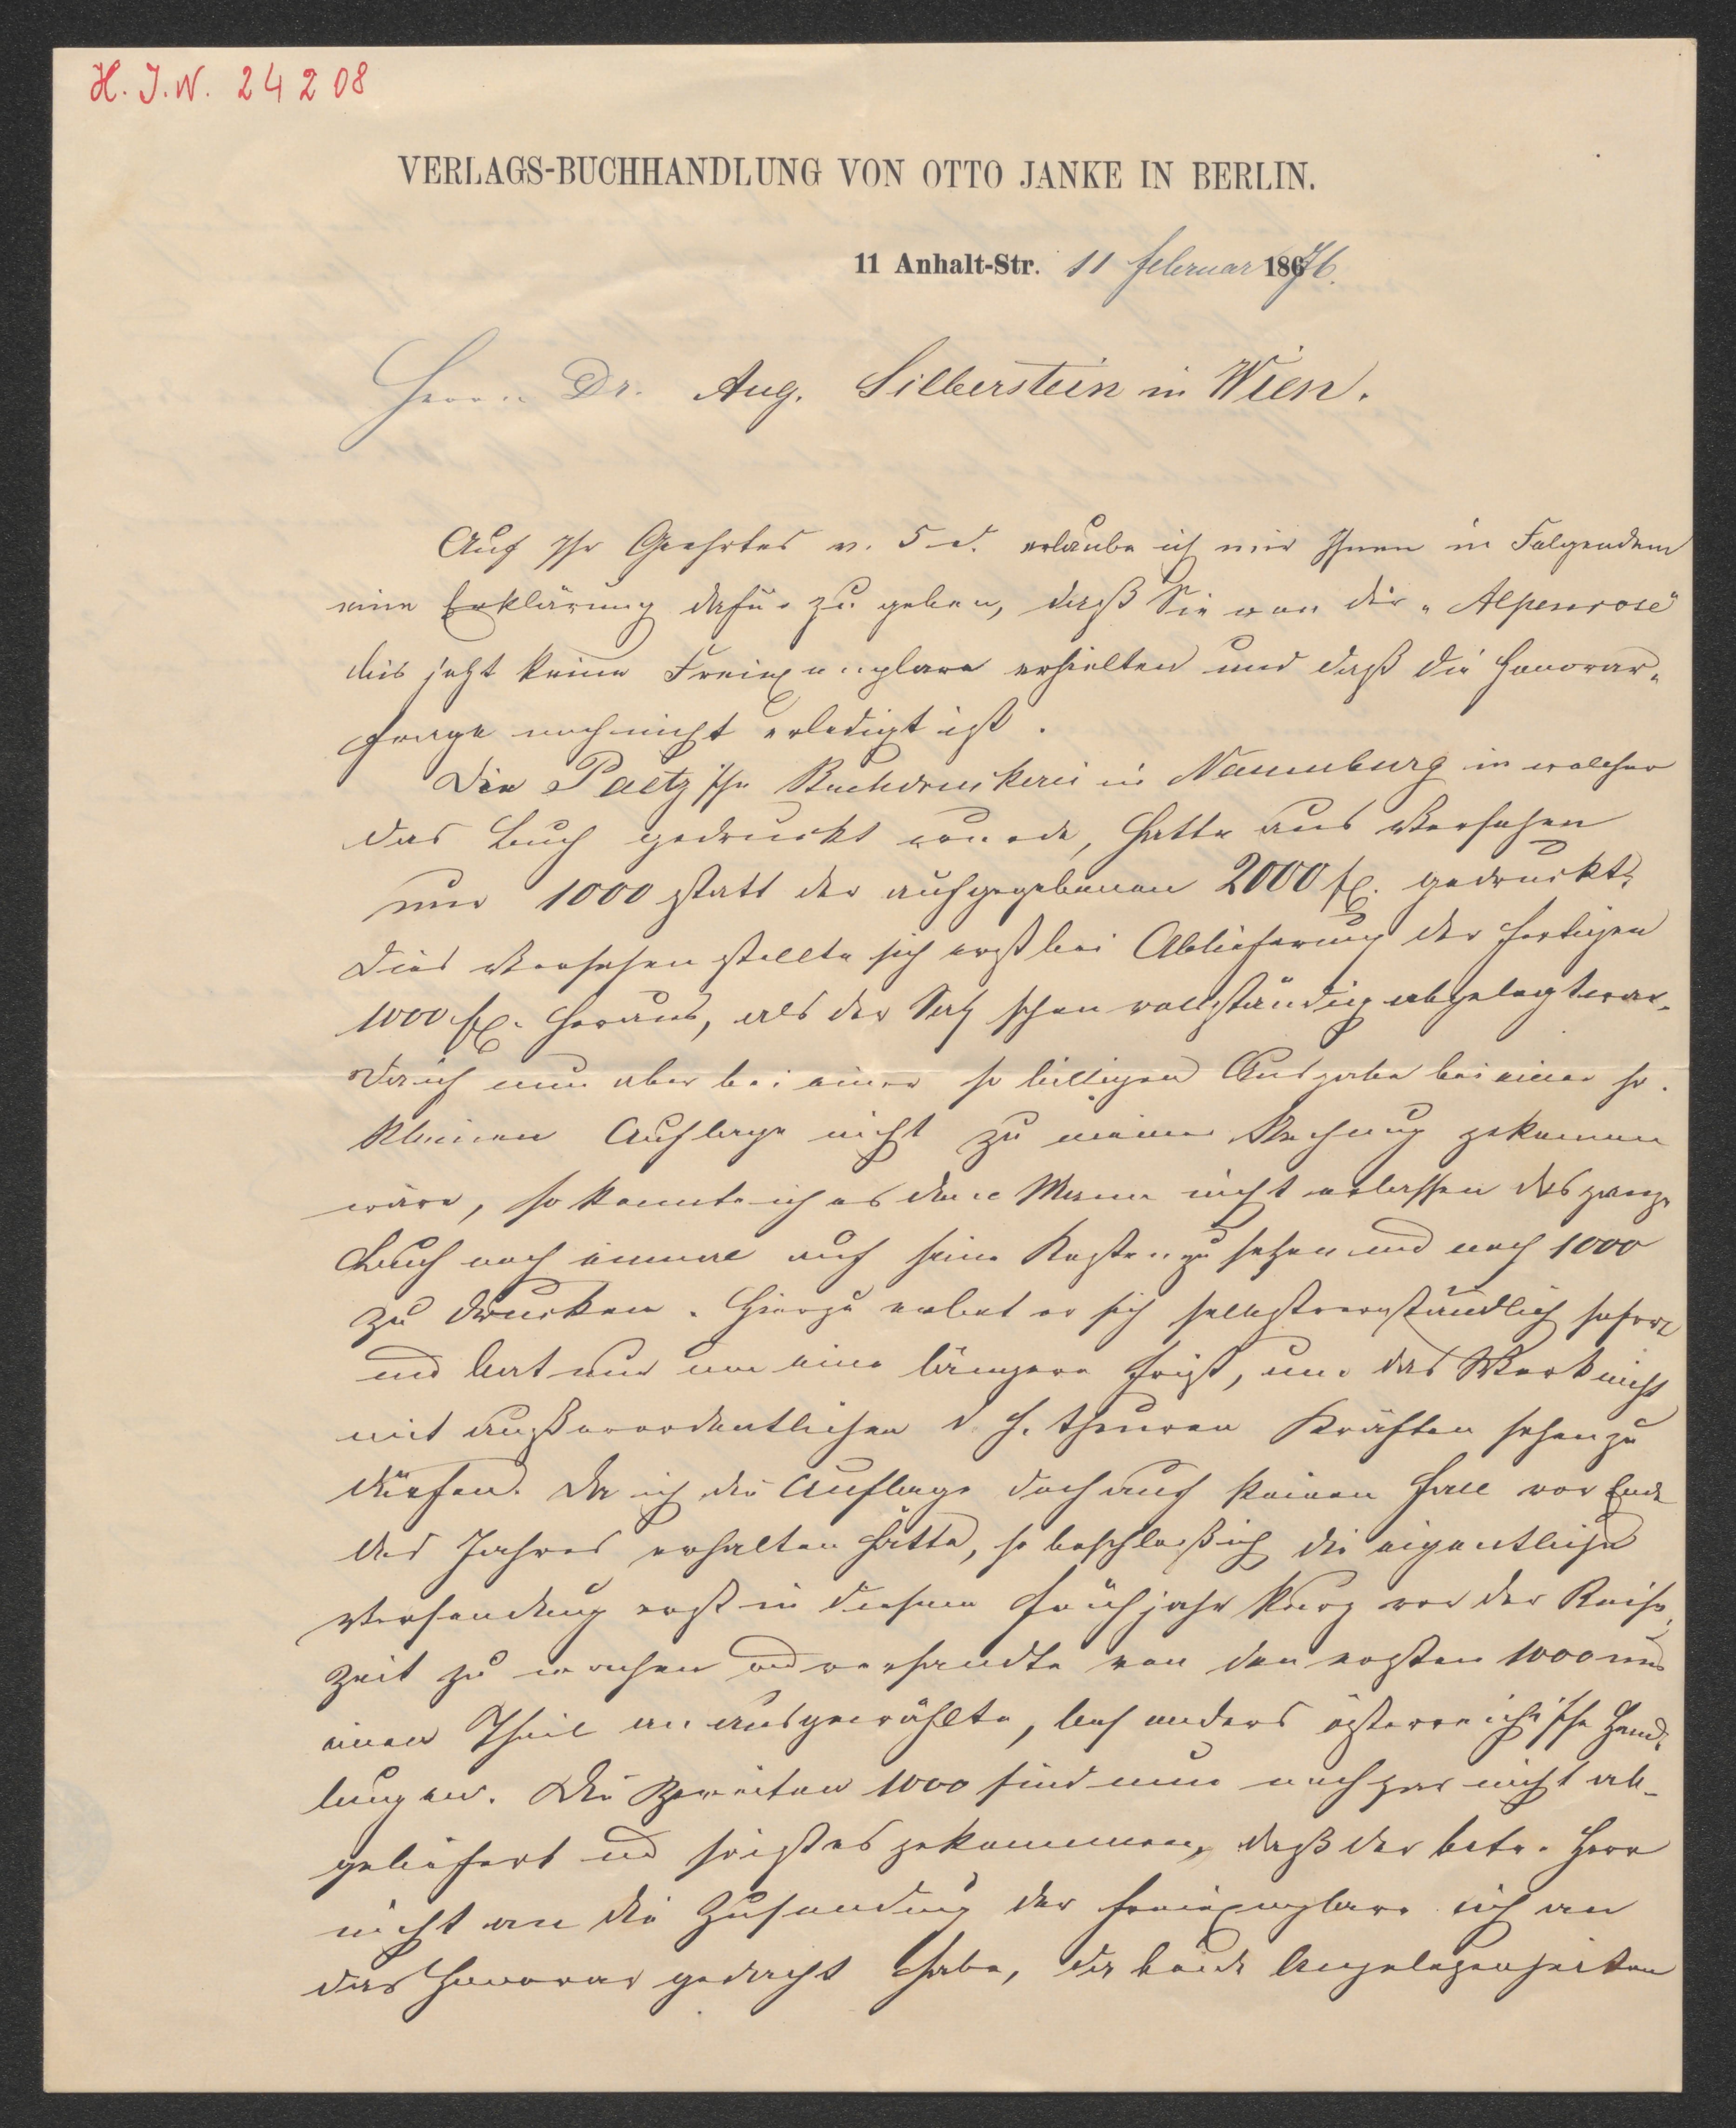 H. I. N. 24208
VERLAGS-BUCHHANDLUNG VON OTTO JANKE IN BERLIN.
11 Anhalt-Str. 11 Februar 1876.
Herrn Dr. Aug. Silberstein in Wien.
Auf Ihr Geehrtes v. 5 d. erlaube ich mir Ihnen in Folgendem
eine Erklärung dafür zu geben, daß Sie von der „Alpenrose"
bis jetzt keine Freiexemplare erhielten und daß die Honorar-
frage noch nicht erledigt ist.
Die Paetz'sche Buchdruckerei in Naumburg in welcher
das Buch gedruckt wurde, hatte aus Versehen
nur 1000 statt der aufgegebenen 2000 Ex. gedruckt.
Dies Versehen stellte sich erst bei Ablieferung der fertigen
1000 Ex. heraus, als der Satz schon vollständig abgelegt war.
Da ich nun aber bei einer so billigen Ausgabe bei einer so
kleinen Auflage nicht zu meiner Rechnung gekommen
wäre, so konnte ich es dem Manne nicht erlassen das ganze
Buch noch einmal auf seine Kosten zu setzen und noch 1000
zu drucken. Hierzu erbot er sich selbstverständlich sofort
und bat nur um eine längere Frist, um das Werk nicht
mit außerordentlichen d. h. theuren Kräften setzen zu
dürfen. Da ich die Auflage doch auf keinen Fall vor Ende
des Jahres erhalten hätte, so beschloß ich die eigentliche
Versendung erst in diesem Frühjahr kurz vor der Reise-
zeit zu machen und versandte von den ersten 1000 nur
einen Theil an ausgewählte, besonders österreichische Hand-
lungen. Die zweiten 1000 sind nun noch gar nicht ab-
geliefert und so ist es gekommen, daß der betr. Herr
nicht an die Zusendung der Freiexemplare ich an
das Honorar gedacht habe, da beide Angelegenheiten